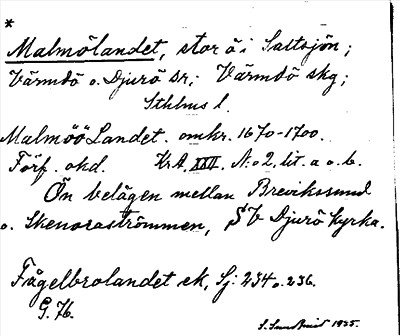 *
Malmölandet, stor ö i Saltsjön;
Värmdö o. Djurö sr; Värmdö skg;
Sthlms l.
Malmöö Landet. omkr. 1670-1700.
Förf. okd. Kr.A. XXVI. N:o 2, lit. a o. b.
Ön belägen mellan Brevikssund
o. Skenoraströmmen, SV Djurö kyrka.
Fågelbrolandet ek, Sj: 234 o. 236.
G. 76.
1935.